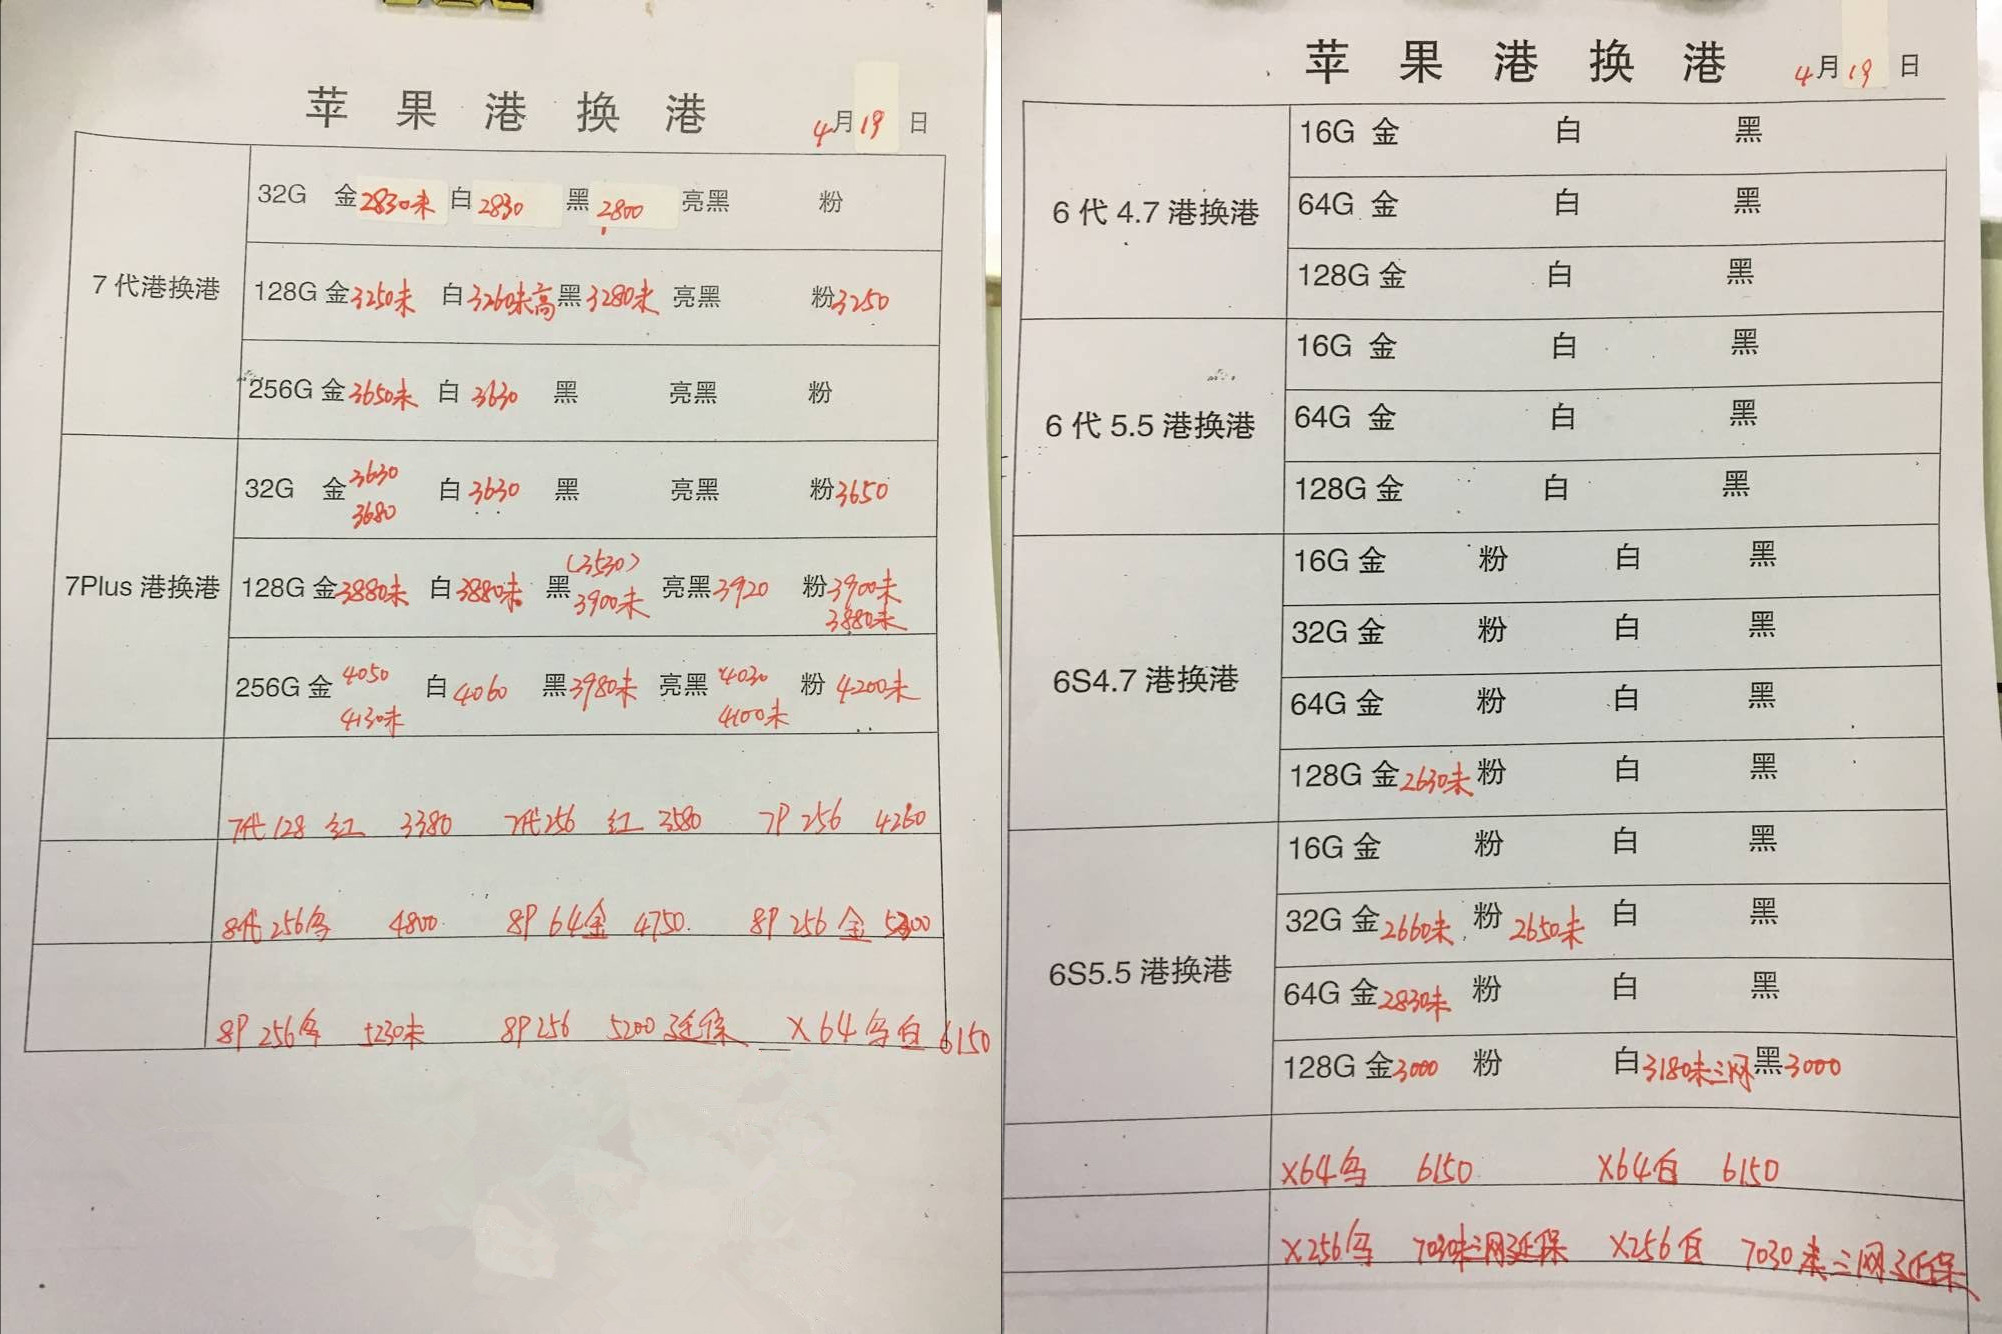 苹果港换港 4月19日
7代港换港
32G 金2830未 白2830 黑2800 亮黑 粉
128G 金3250未 白3260未高 黑3280未 亮黑 粉3250
256G 金3650未 白3630 黑 亮黑 粉
7Plus 港换港
32G 金3630 3680 白3630 黑 亮黑 粉3650
128G 金3880未 白3880未 黑(3530) 3900未 亮黑3920 粉3900未 3880未
256G 金4050 4130未 白4060 黑3980未 亮黑4030 4100未 粉4200未
7代128 红 3380 7代256 红 3580 7P 256 4260
8代256 4800 8P 64金 4750. 8P 256金
8P 256 5230未 8P256 5200延保 X64 白 6150
苹果港换港 4月19日
6代4.7港换港
16G 金 白 黑
64G 金 白 黑
128G 金 白 黑
6代5.5港换港
16G 金 白 黑
64G 金 白 黑
128G 金 白 黑
6S4.7港换港
16G 金 粉 白 黑
32G 金 粉 白 黑
64G 金 粉 白 黑
128G 金2630未 粉 白 黑
6S5.5港换港
16G 金 粉 白 黑
32G 金2660未 粉2650未 白 黑
64G 金2830未 粉 白 黑
128G 金3000 粉 白3180未三网 黑3000
X64 6150 X64白 6150
X256 7030未三网延保 X256白 7030未三网延保